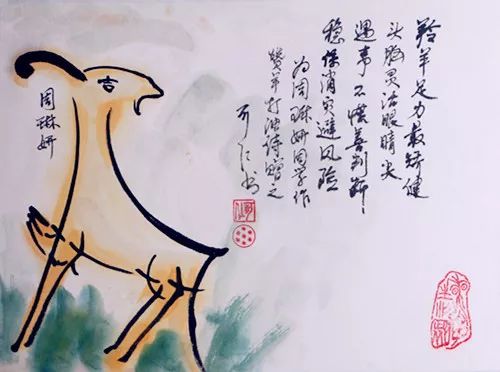 羚羊足力最矫健
头脑灵活眼睛尖
遇事不慌善判断
稳保消灾避风险
为周琳妍同学作
赞羊打油诗赠之
周琳妍
吉